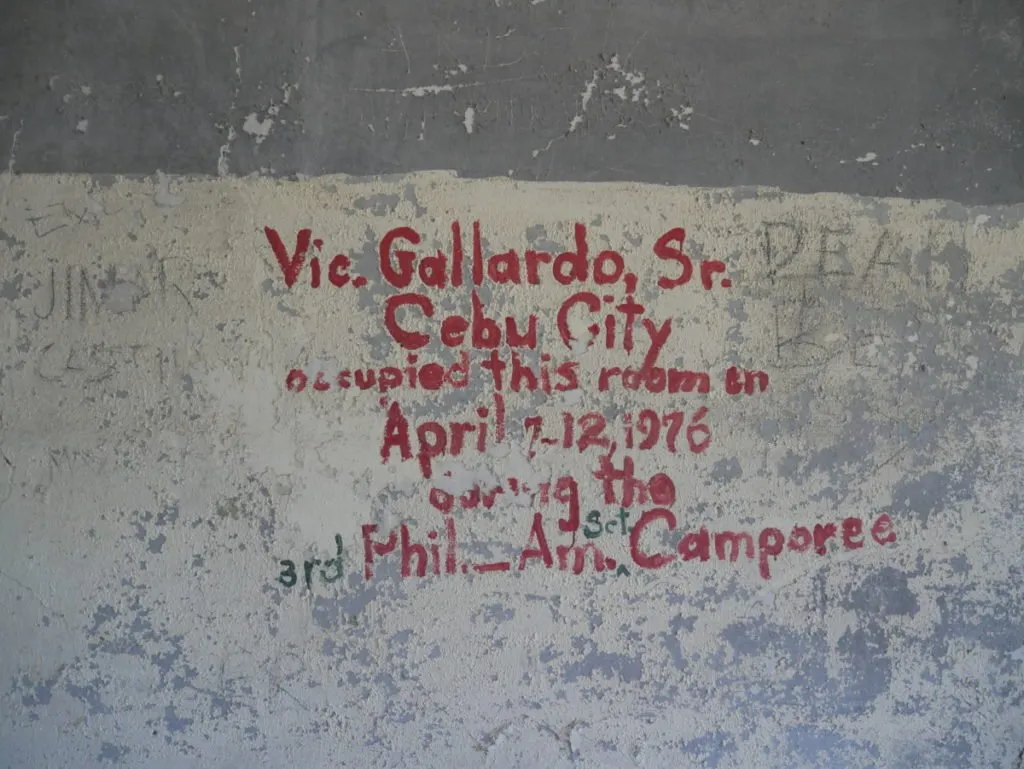 Vic. Gallardo, Sr.
Cebu City
occupied this room on
April 7-12, 1976
during the
3rd Phil._Am. Sct. Camporee
DEAN
JINGKY